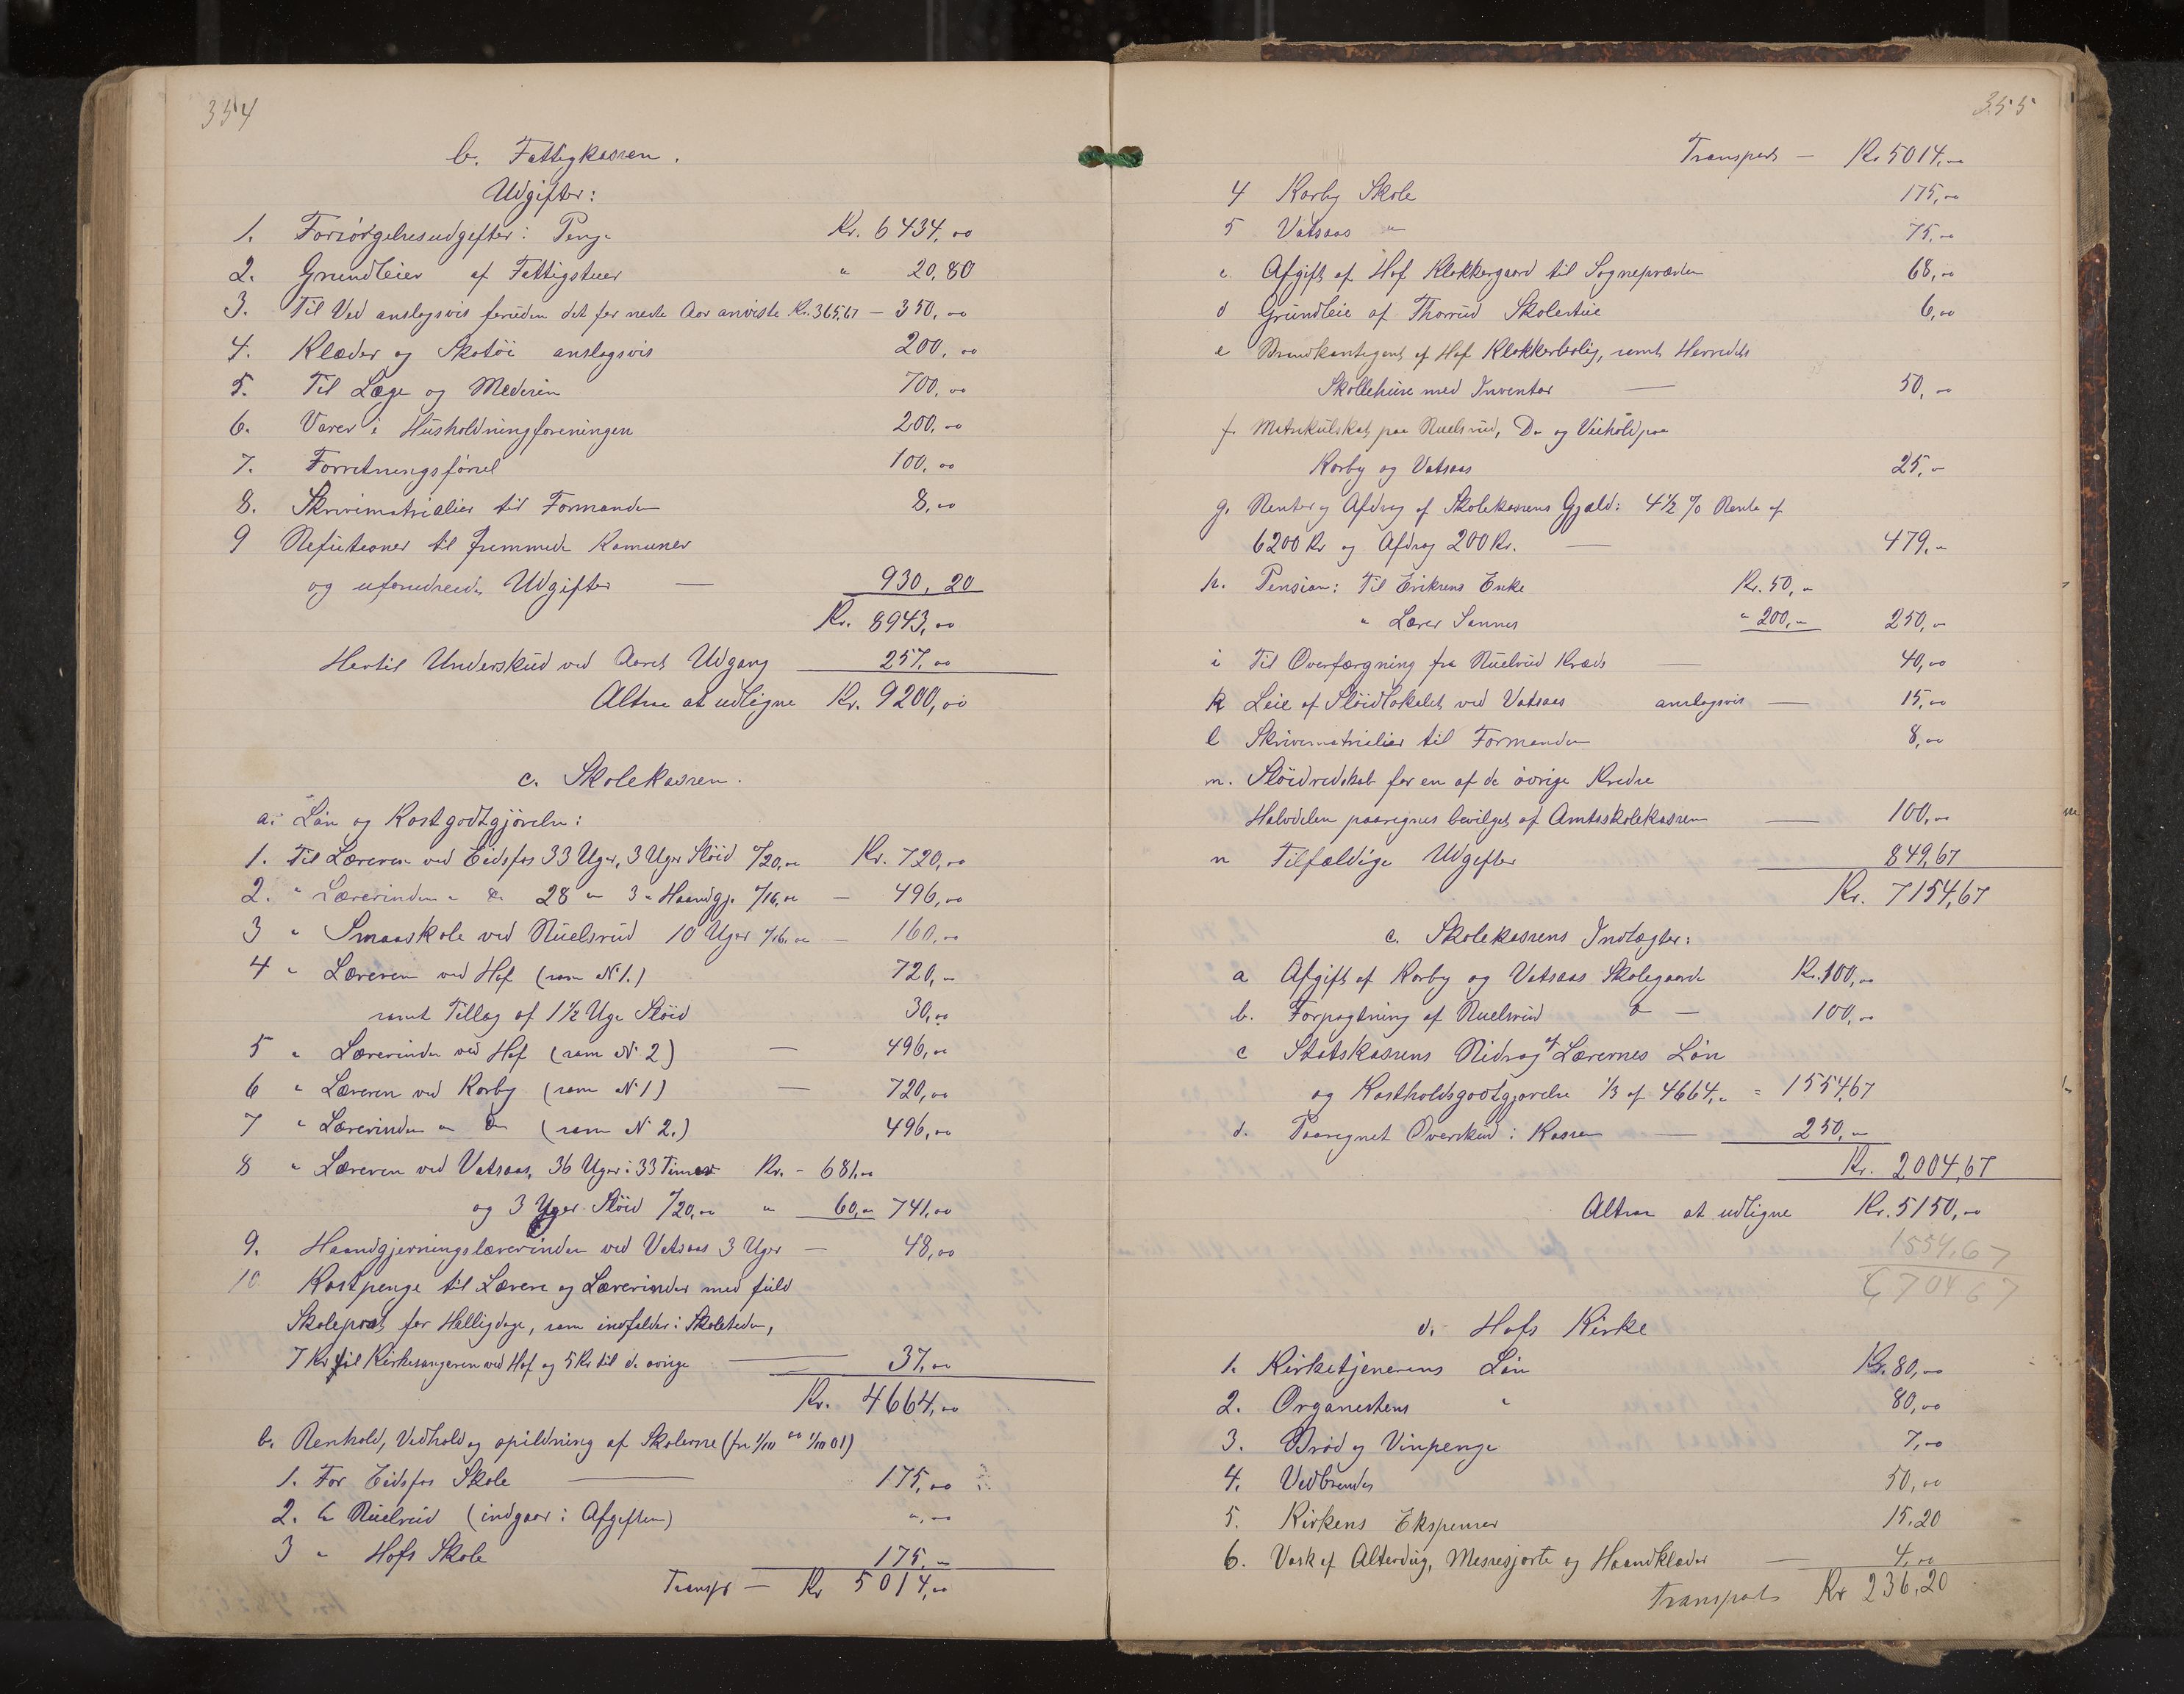 354
b. Fattigkassen.
Udgifter:
1. Forsørgelsesudgifter: Penge Kr. 6434,00
2. Grundleier af Fattigstuer " 20,80
3. Til Ved anslagsvis foruden det for neste Aar anviste Kr. 365,67 — 350,00
4. Klæder og Skotøi anslagsvis 200,00
5. Til Læge og Medesin 700,00
6. Varer i Husholdningforeningen 200,00
7. Forretningsførsel 100,00
8. Skrivimatrialier til Formanden 8,00
9 Refutioner til fremmede Komuner
og uforudseede Udgifter — 930,20
Kr. 8943,00
Hertil Underskud ved Aarets Udgang 257,00
Altsaa at udligne Kr. 9200,00
c. Skolekassen.
a. Løn og Kostgodtgjørelse:
1. Til Læreren ved Eidsfos 33 Uger, 3 Uger Sløid a/20,00 Kr. 720,00
2. " Lærerinden " do 28 " 3 " Haandgj. a/16,00 — 496,00
3 " Smaaskole ved Ruelsrud 10 Uger a/16,00 — 160,00
4 " Læreren ved Hof (som No 1.) 720,00
samt Tillæg af 1½ Uge Sløid 30,00
5 " Lærerinden ved Hof (som No 2) — 496,00
6 " Læreren ved Korby (som No 1) — 720,00
7 " Lærerinden " do (som No 2.) 496,00
8 " Læreren ved Vatsaas, 36 Uger i 33 Timer Kr. - 681,00
og 3 Uger Sløid a/20,00 " 60,00 741,00
9. Haandgjerningslærerinden ved Vatsaas 3 Uger — 48,00
10 Kostpenge til Lærere og Lærerinder med fuld
Skolepost for Helligdage, som indfalder i Skoletiden,
7 Kr til Kirkesangeren ved Hof og 5 Kr til de øvrige — 37,00
Kr. 4664,00
b. Renhold, Vedhold og opildning af Skolerne (fra 1/10 00 1/10 01)
1. For Eidsfos Skole — 175,00
2. " Ruelsrud (indgaar i Afgiften) ",00
3 " Hofs Skole 175,00
Transp — Kr 5014,00
355
Transport — Kr 5014,00
4 Korby Skole 175,00
5 Vatsaas " 75,00
c. Afgift af Hof Klokkergaard til Sognepræsten 68,00
d Grundleie af Thorrud Skolestue 6,00
e Brandkontigent af Hof Klokkerbolig, samt Herredets
Skolehuse med Inventar — 50,00
f. Matrikulskat paa Ruelsrud, Do og Veihold paa
Korby og Vatsaas 25,00
g. Renter og Afdrag af Skolekassens Gjæld: 4½ % Rente af
6200 Kr og Afdrag 200 Kr. — 479,00
h. Pension: Til Eriksens Enke Kr. 50,00
" Lærer Sannes " 200,00 250,00
i Til Overfærgning fra Ruelsrud Kreds — 40,00
k Leie af Sløidlokalet ved Vatsaas anslagsvis — 15,00
l Skrivematrialier til Formanden 8,00
m. Sløidredskab for en af de øvrige Kredse
Halvdelen paaregnes bevilget af Amtsskolekassen — 100,00
n Tilfældige Udgifter 849,67
Kr. 7154,67
c. Skolekassens Indtægter:
a Afgift af Korby og Vatsaas Skolegaarde Kr. 100,00
b. Forpagtning af Ruelsrud do — 100,00
c Statskassens Bidrag af Lærernes Løn
og Kostholdsgodtgjørelse 1/3 af 4664,00 = 1554,67
d. Paaregnet Overskud i Kassen — 250,00
Kr. 2004,67
Altsaa at udligne Kr. 5150,00
1554,67
6704 67
d. Hofs Kirke
1. Kirketjenerens Løn Kr. 80,00
2. Organistens " 80,00
3. Brød og Vinpenge 7,00
4. Vedbrendes 50,00
5. Kirkens Ekspenser 15,20
6. Vask af Alterdug, Messesjorte og Haandklæder — 4,00
Transport Kr 236,20